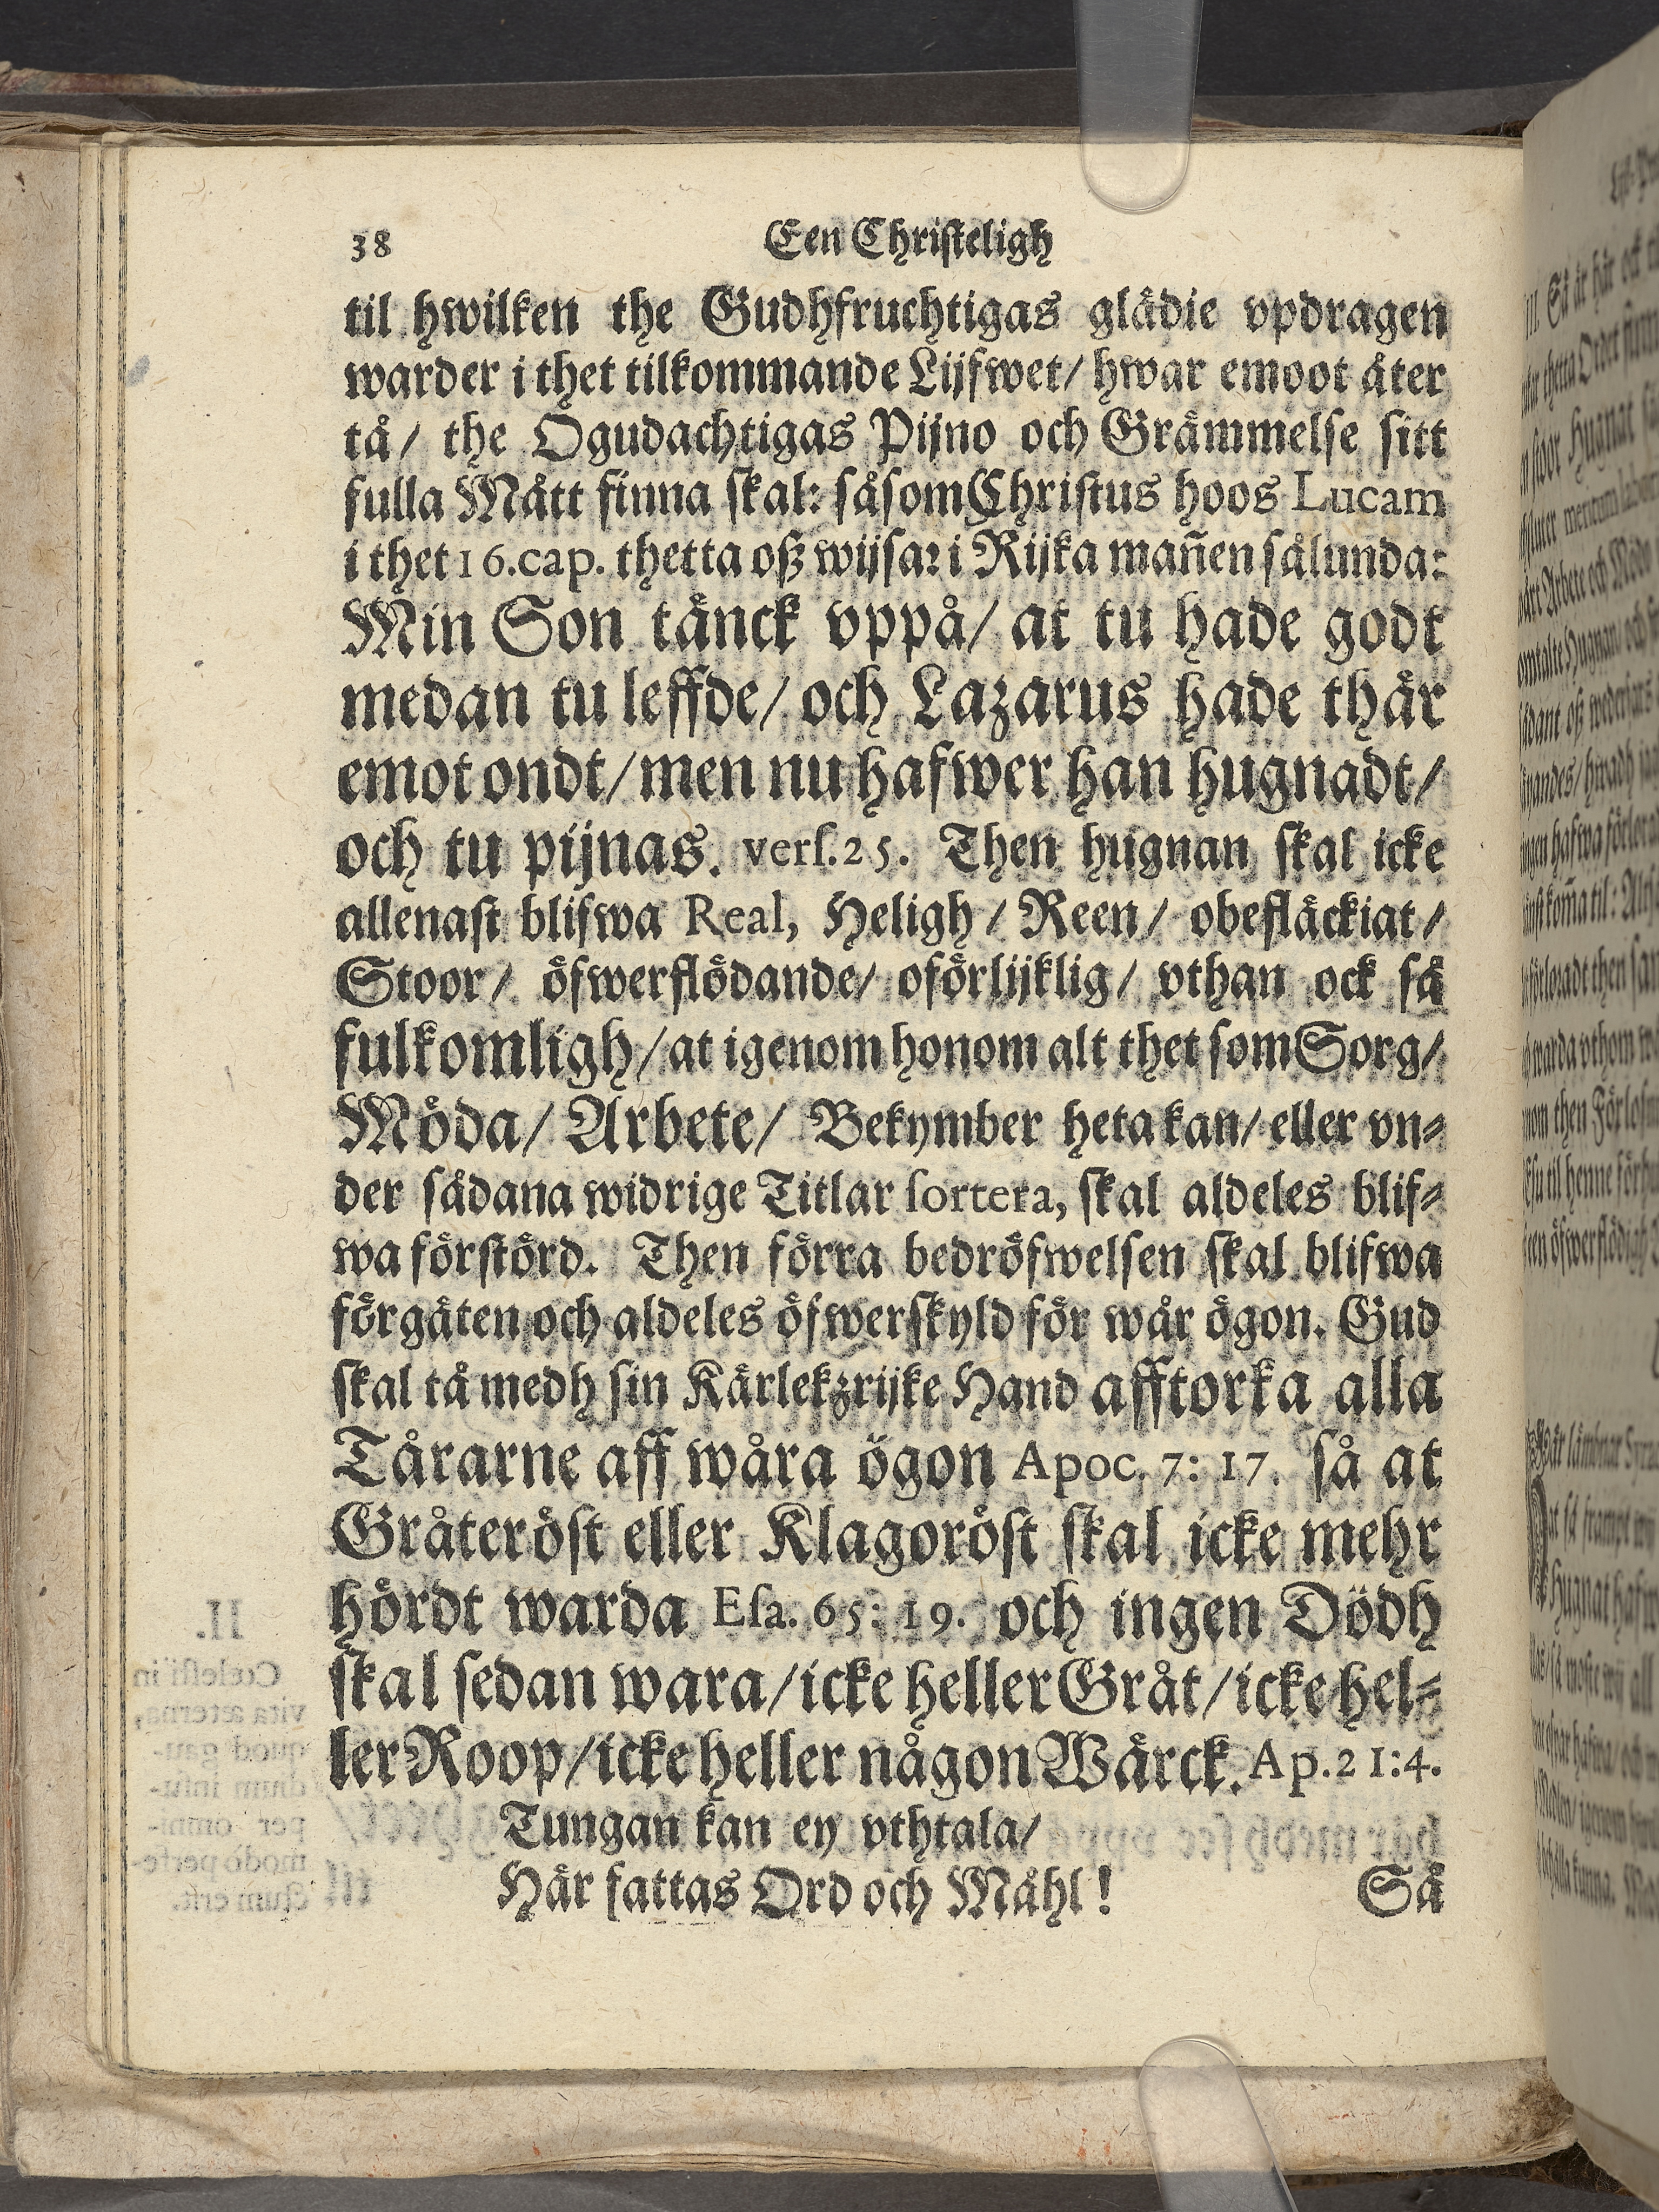 38 Een Christeligh
til hwilken the Gudhfruchtigas glädie vpdragen
warder i thet tilkommande Lijfwet/ hwar emoot åter
tå/ the Ogudachtigas Pijno och Grämmelse sitt
fulla Mått finna skal: såsom Christus hoos Lucam
i thet 16. cap. thetta oß wijsar i Rijka mañen sålunda:
Min Son tänck vppå/ at tu hade godt
medan tu leffde/ och Lazarus hade thär
emot ondt/ men nu hafwer han hugnadt/
och tu pijnas. vers. 25. Then hugnan skal icke
allenast blifwa Real, Heligh/ Reen/ obefläckiat/
Stoor/ öfwerflödande/ oförlijklig/ vthan ock så
fulkomligh/ at igenom honom alt thet som Sorg/
Möda/ Arbete/ Bekymber heta kan/ eller vn⸗
der sådana widrige Titlar sortera, skal aldeles blif⸗
wa förstörd. Then förra bedröfwelsen skal blifwa
förgäten och aldeles öfwerskyld för wår ögon. Gud
skal tå medh sin Kärlekzrijke Hand afftorka alla
Tårarne aff wåra ögon Apoc. 7: 17. så at
Gråteröst eller Klagoröst skal icke mehr
hördt warda Esa. 65: 19. och ingen Dödh
skal sedan wara/ icke heller Gråt/ icke hel⸗
ler Roop/ icke heller någon Wärck. Ap. 21:4.
Tungan kan ey vthtala/
Här fattas Ord och Måhl! Så